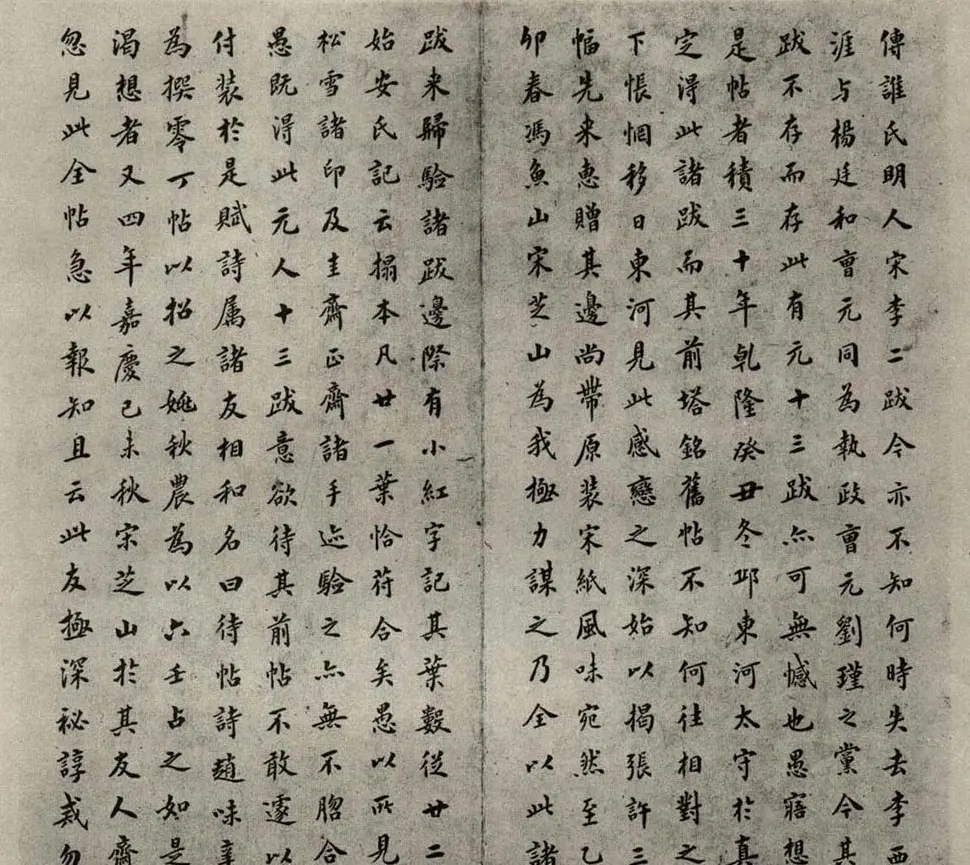 傳誰氏明人宋李二跋今亦不知何時失去李西
涯与楊廷和曹元同為執政曹元劉瑾之黨今其
跋不存而存此有元十三跋亦可無憾也愚寤想
是帖者積三十年乹隆癸丑冬邛東河太守於真
定淂此諸跋而其前塔銘舊帖不知何往相對之
下悵惘移日東河見此感戀之深始以揭張許三
幅先来惠贈其邊尚帶原装宋紙風味宛然至乙
卯春馮魚山宋芝山為我極力謀之乃全以此諸
跋来歸驗諸跋邊際有小紅字記其葉數從廿二
始安氏記云搨本凡廿一葉恰苻合矣愚以所見
松雪諸印及圭齋正齋諸手迹驗之亦無不脗合
愚既淂此元人十三跋意欲待其前帖不敢遽以
付装於是賦詩属諸友相和名曰待帖詩趙味辛
為撰零丁帖以招之姚秋農為以六壬占之如是
渴想者又四年嘉慶己未秋宋芝山於其友人齋
忽見此全帖急以報知且云此友極深秘諄戒勿